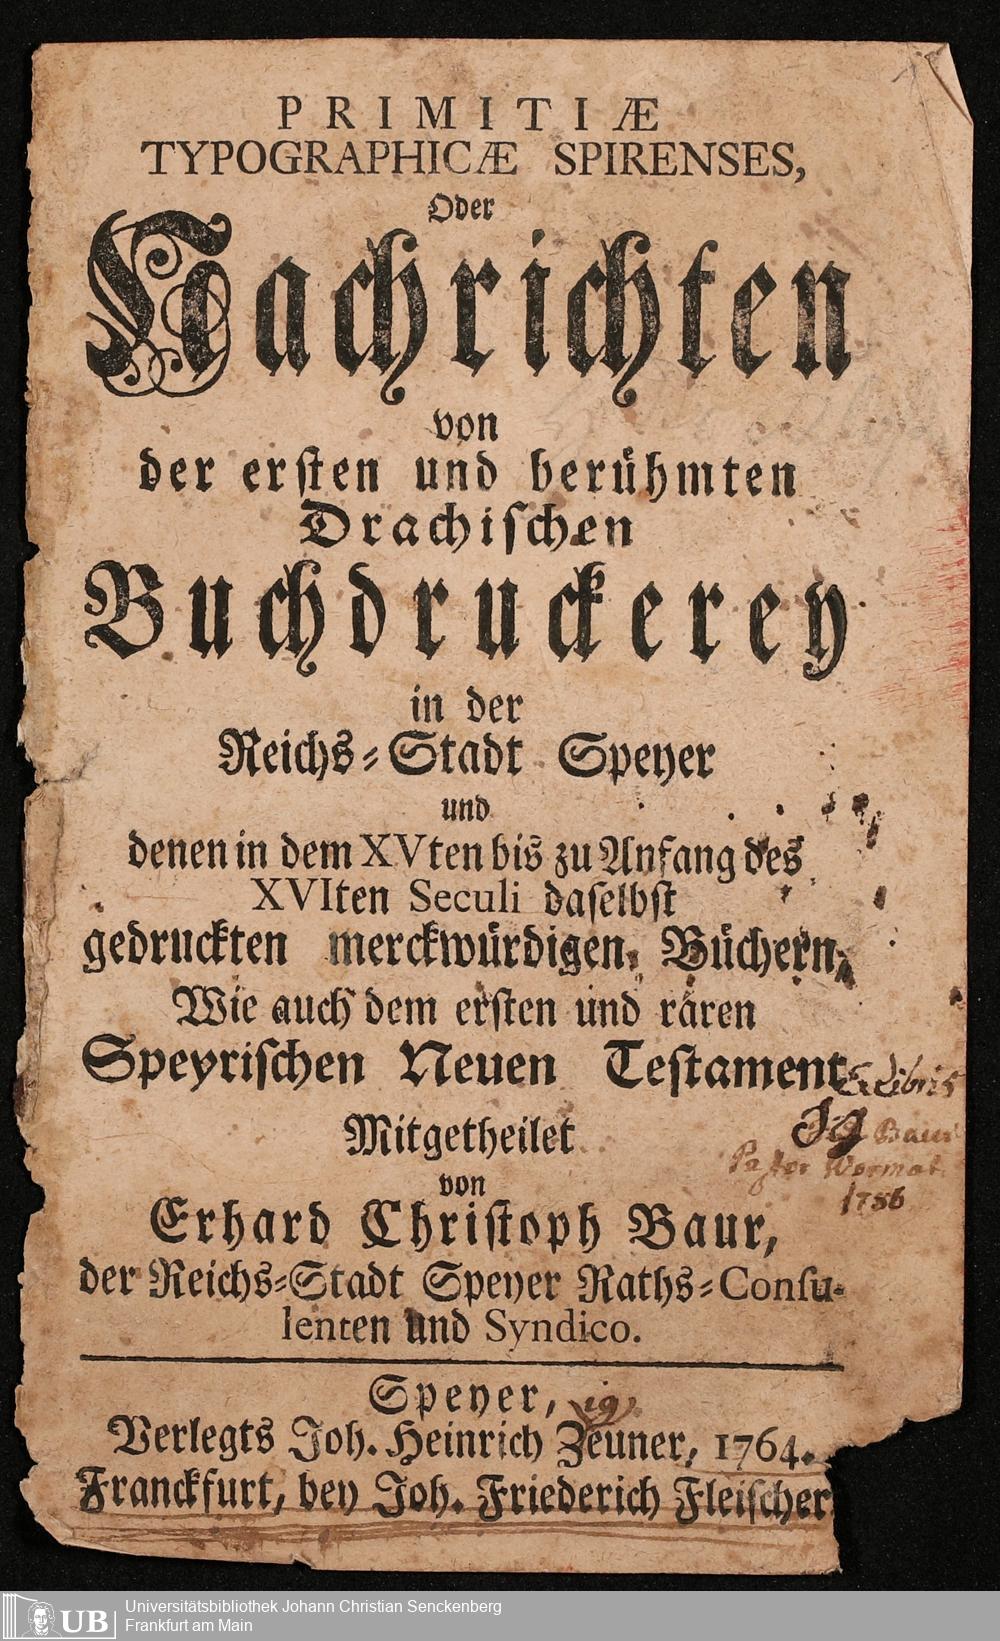 PRIMITIÆ
TYPOGRAPHICÆ SPIRENSES,
Oder
Nachrichten
von
der ersten und berühmten
Drachischen
Buchdruckerey
in der
Reichs=Stadt Speyer
und
denen in dem XVten bis zu Anfang des
XVIten Seculi daselbst
gedruckten merckwürdigen Büchern,
Wie auch dem ersten und raren
Speyrischen Neuen Testament
Ex Libris
Baur
Pastor Wormat.
1786
Mitgetheilet
von
Erhard Christoph Baur,
der Reichs=Stadt Speyer Raths=Consu-
lenten und Syndico.
Speyer,
Verlegts Joh. Heinrich Zeuner, 1764.
Franckfurt, bey Joh. Friederich Fleischer.
UB
Universitätsbibliothek Johann Christian Senckenberg
Frankfurt am Main